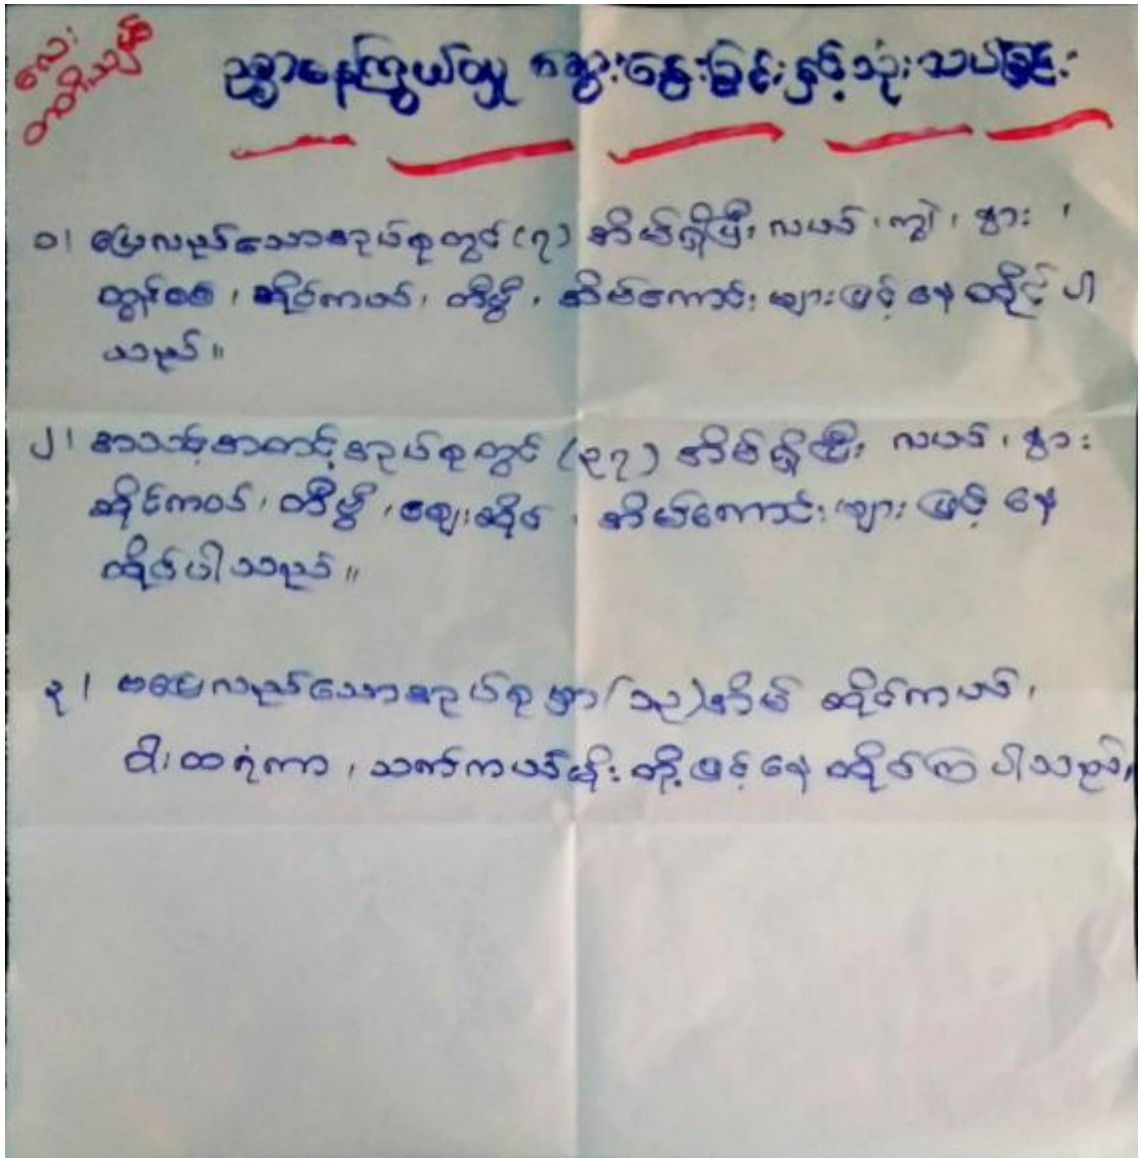 လေး
ဥစ္စာနေကြွယ်ဝမှု ဆွေးနွေးခြင်းနှင့်သုံးသပ်ခြင်း
၁၊ ပြေလည်သောအုပ်စုတွင် (၇) အိမ်ရှိပြီး လယ်၊ ကျွဲ၊ နွား၊
ထွန်စက်၊ ဆိုင်ကယ်၊ တီဗွီ၊ အိမ်ကောင်းများဖြင့် နေထိုင်ပါ
သည်။
၂၊ အသင့်အတင့်အုပ်စုတွင် (၃၇) အိမ်ရှိပြီး လယ်၊ နွား
ဆိုင်ကယ်၊ တီဗွီ၊ ဈေးဆိုင်၊ အိမ်ကောင်းများဖြင့် နေ
ထိုင်ပါသည်။
၃၊ မပြေလည်သောအုပ်စုမှာ အိမ် ဆိုင်ကယ်၊
ဝါးထရံကာ၊ သက်ကယ်မိုးတို့ဖြင့် နေထိုင်ကြပါသည်။